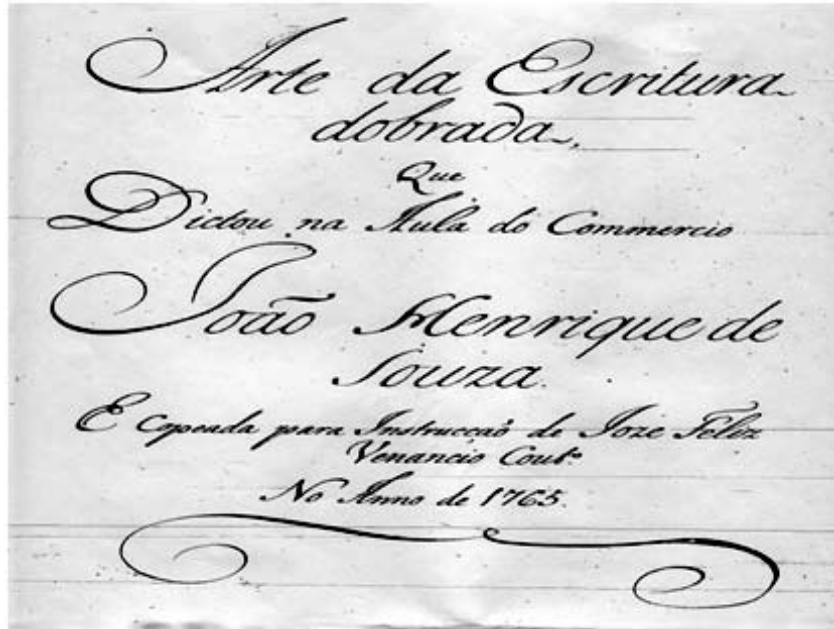 Arte da Escritura
dobrada,
Que
Dictou na Aula do Commercio
João Henrique de
Souza.
E Copeada para Instrucçaõ de Joze Feliz
Venancio Coutº
No Anno de 1765.